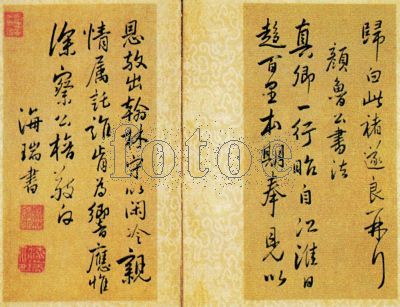 歸白此褚遂良再行
顏魯公書法
真卿一行昨自江淮日
趨百里本期奉見以
恩敕出翰林守以閑冷親
情属託誰肯為響應惟
深察公椿敬白
海瑞書
fotoe